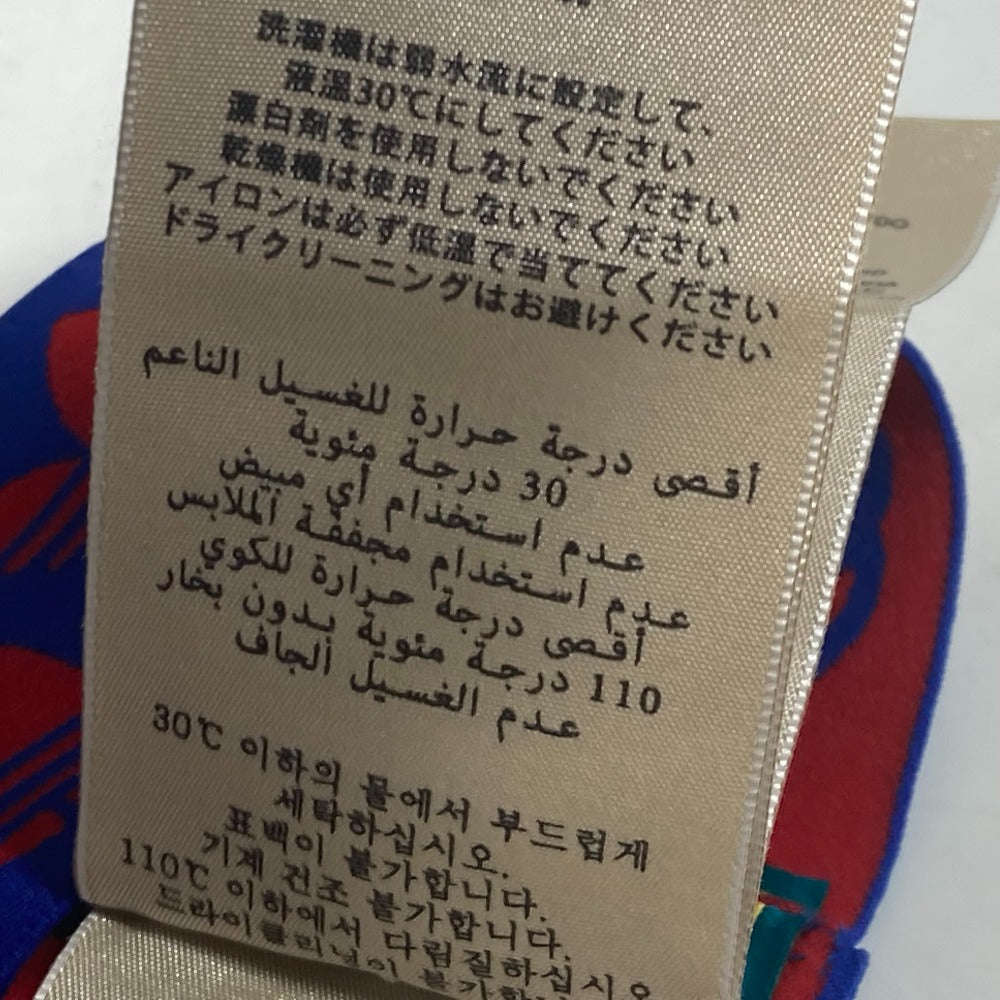 洗濯機は弱水流に設定して、
液温30℃にしてください
漂白剤を使用しないでください
乾燥機は使用しないでください
アイロンは必ず低温で当ててください
ドライクリーニングはお避けください
أقصى درجة حرارة للغسيل الناعم
30 درجة مئوية
عدم استخدام أي مبيض
عدم استخدام مجففة الملابس
أقصى درجة حرارة للكوي
110 درجة مئوية بدون بخار
عدم الغسيل الجاف
30℃ 이하의 물에서 부드럽게
세탁하십시오.
표백이 불가합니다.
기계 건조 불가합니다.
110℃ 이하에서 다림질하십시오
드라이클리닝이 불가합니